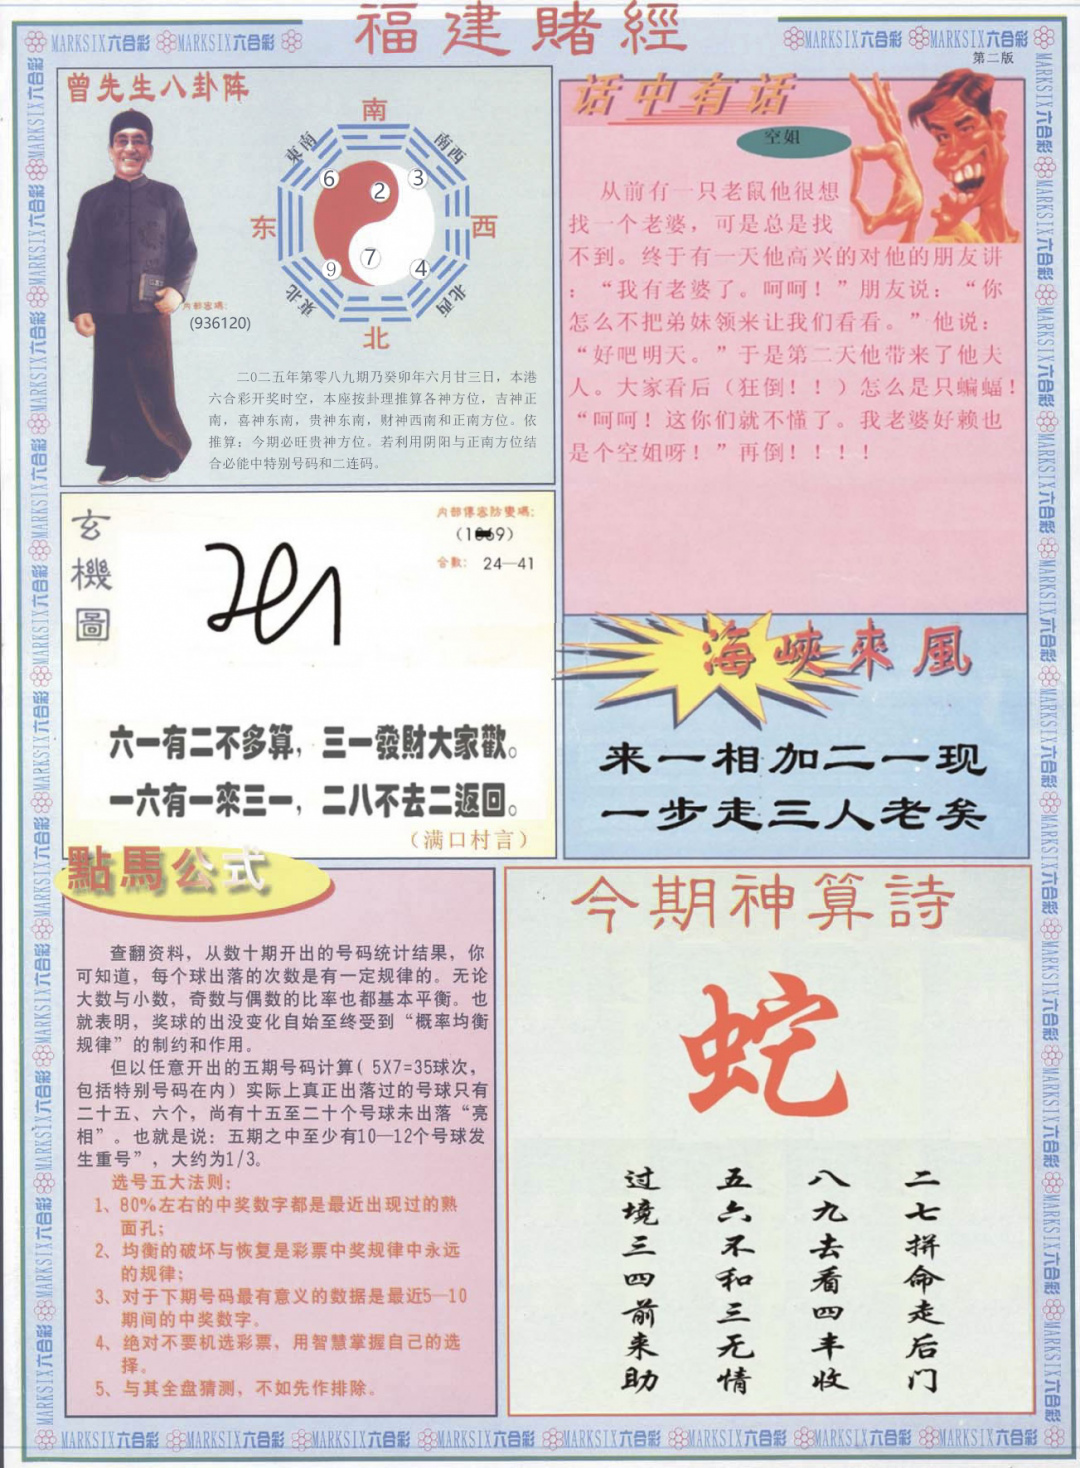 福建賭經
MARKSIX六合彩 MARKSIX六合彩
MARKSIX六合彩 MARKSIX六合彩
第二版
曾先生八卦阵
南
東南
南西
6
2
3
东
西
7
9
4
東北
北西
北
内部密碼:
(936120)
二0二五年第零八九期乃癸卯年六月廿三日，本港
六合彩开奖时空，本座按卦理推算各神方位，吉神正
南，喜神东南，贵神东南，财神西南和正南方位。依
推算：今期必旺贵神方位。若利用阴阳与正南方位结
合必能中特别号码和二连码。
话中有话
空姐
从前有一只老鼠他很想
找一个老婆，可是总是找
不到。终于有一天他高兴的对他的朋友讲
：“我有老婆了。呵呵！”朋友说：“你
怎么不把弟妹领来让我们看看。”他说：
“好吧明天。”于是第二天他带来了他夫
人。大家看后（狂倒！！）怎么是只蝙蝠！
“呵呵！这你们就不懂了。我老婆好赖也
是个空姐呀！”再倒！！！！
玄機圖
内部傳密防變碼:
合數: 24—41
六一有二不多算，三一發財大家歡。
一六有一來三一，二八不去二返回。
（满口村言）
海峽來風
来一相加二一现
一步走三人老矣
點馬公式
查翻资料，从数十期开出的号码统计结果，你
可知道，每个球出落的次数是有一定规律的。无论
大数与小数，奇数与偶数的比率也都基本平衡。也
就表明，奖球的出没变化自始至终受到“概率均衡
规律”的制约和作用。
但以任意开出的五期号码计算( 5X7=35球次，
包括特别号码在内）实际上真正出落过的号球只有
二十五、六个，尚有十五至二十个号球未出落“亮
相”。也就是说：五期之中至少有10—12个号球发
生重号”，大约为1/3。
选号五大法则:
1、80%左右的中奖数字都是最近出现过的熟
面孔；
2、均衡的破坏与恢复是彩票中奖规律中永远
的规律；
3、对于下期号码最有意义的数据是最近5—10
期间的中奖数字。
4、绝对不要机选彩票，用智慧掌握自己的选
择。
5、与其全盘猜测，不如先作排除。
今期神算詩
蛇
二七拼命走后门
八九去看四丰收
五六不和三无情
过境三四前来助
MARKSIX六合彩 MARKSIX六合彩 MARKSIX六合彩 MARKSIX六合彩 MARKSIX六合彩 MARKSIX六合彩 MARKSIX六合彩 MARKSIX六合彩